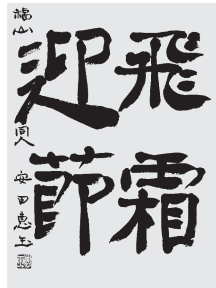 飛霜
迎節
福山 同人 安田恵玉